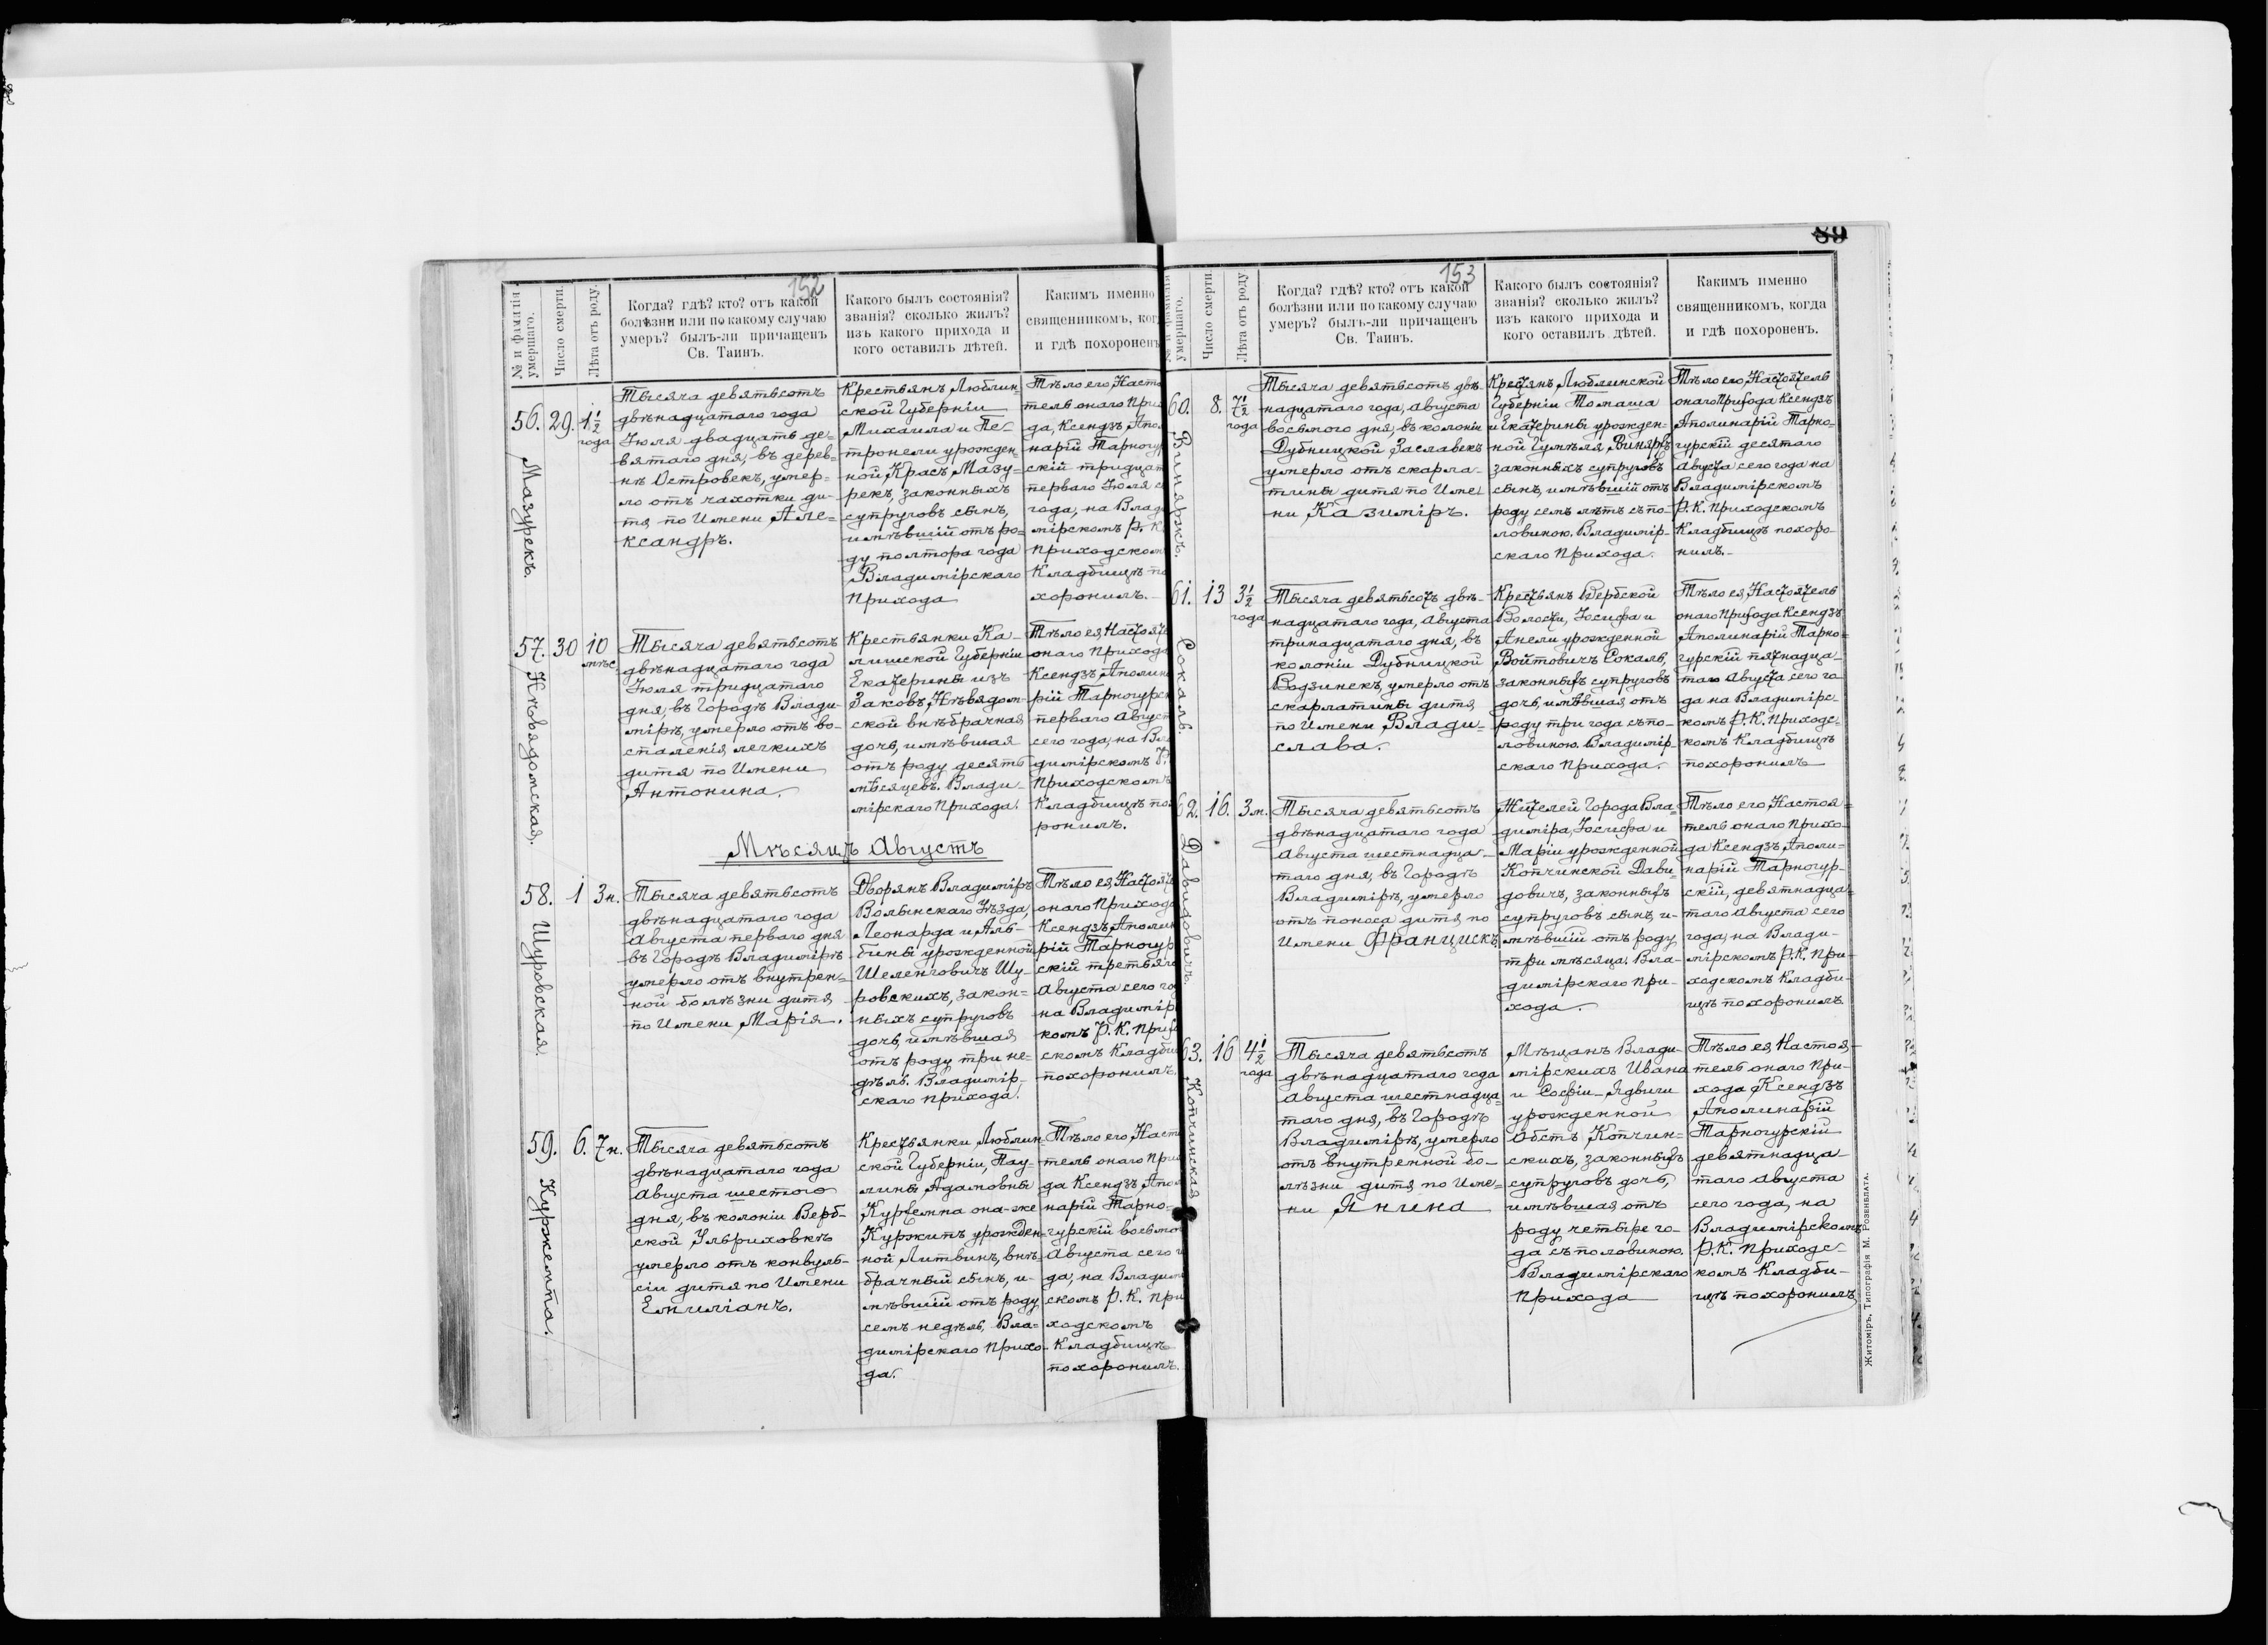 152
№ и фамилія умершаго.
Число смерти.
Лѣта отъ роду.
Когда? гдѣ? кто? отъ какой
болѣзни или по какому случаю
умеръ? былъ-ли причащенъ
Св. Таинъ.
Какого былъ состоянія?
званія? сколько жилъ?
изъ какого прихода и
кого оставилъ дѣтей.
Какимъ именно
священникомъ, ког
и гдѣ похороненъ
56.
Мазурекъ.
29.
1½
года
Тысяча девятьсотъ
двѣнадцатаго года
Іюля двадцать де=
вятаго дня, въ дерев=
нѣ Островекъ, умер=
ло отъ чахотки ди-
тя по Имени Але=
ксандръ.
Крестьянъ Люблин=
ской Губерніи
Михаила и Пе-
тронели урожден
ной Красъ, Мазу=
рекъ, законныхъ
супруговъ сынъ,
имѣвшій отъ ро=
ду полтора года
Владимірскаго
Прихода
Тѣло его, Насто
тель онаго При
да, Ксендзъ Апо
нарій Тарногур
скій тридцат
перваго Іюля с
года, на Влад
мірскомъ Р. К
Приходском
Кладбищѣ по
хоронилъ.-
57.
Нѣвядомская.
30
10
мѣс.
Тысяча девятьсотъ
двѣнадцатаго года
Іюля тридцатаго
дня, въ Городѣ Влади-
мірѣ, умерло отъ во-
спаленія легкихъ
дитя по Имени
Антонина.
Крестьянки Ка-
лишской Губерніи
Екатерины изъ
Заковъ, Нѣвядом-
ской внѣбрачная
дочь, имѣвшая
отъ роду десять
мѣсяцевъ. Влади-
мірскаго Прихода.
Тѣло ея, Настоят
онаго Прихода
Ксендзъ Аполин
рій Тарногурск
перваго Август
сего года, на Вла
димірскомъ Р.
Приходскомъ
Кладбищѣ по
ронилъ.
Мѣсяцъ Августъ
58.
Щуровская.
1
3н.
Тысяча девятьсотъ
двѣнадцатаго года
Августа перваго дня
въ Городѣ Владимірѣ
умерло отъ внутрен=
ной болѣзни дитя
по Имени Марія.
Дворянъ Владиміръ
Волынскаго Уѣзда,
Леонарда и Аль-
бины урожденной
Шеленговичъ Щу-
ровскихъ, закон=
ныхъ супруговъ
дочь, имѣвшая
отъ роду три не-
дѣль. Владимір-
скаго прихода.
Тѣло ея, Настоят
онаго Прихода
Ксендзъ Аполин
рій Тарногур
скій третьяго
Августа сего го
на Владимір
комъ Р. К. Прих
скомъ Кладби
похоронилъ.
59.
Куржемпа.
6.
7н.
Тысяча девятьсотъ
двѣнадцатаго года
Августа шестого
дня, въ колоніи Верб-
ской Ульриховкѣ
умерло отъ конвуль-
сіи дитя по Имени
Емиліанъ.
Крестьянки Люблин-
ской Губерніи, Пау-
лины Адамовны
Куржемпа она-же
Куржитъ урожден=
ной Литвинъ, внѣ-
брачный сынъ, и-
мѣвшій отъ роду
семъ недѣль, Вла=
димірскаго прихо-
да.
Тѣло его, Насто
тель онаго При
да Ксендзъ Апо
нарій Тарно-
гурскій восьмо
Августа сего г
да, на Владим
скомъ Р. К. При
ходскомъ
Кладбищѣ
похоронилъ.
89
153
№ и фамилія умершаго.
Число смерти.
Лѣта отъ роду
Когда? гдѣ? кто? отъ какой
болѣзни или по какому случаю
умеръ? былъ-ли причащенъ
Св. Таинъ.
Какого былъ состоянія?
званія? сколько жилъ?
изъ какого прихода и
кого оставилъ дѣтей.
Какимъ именно
священникомъ, когда
и гдѣ похороненъ.
60.
Виняржъ.
8.
7½
года
Тысяча девятьсотъ двѣ
надцатаго года, Августа
восьмого дня, въ колоніи
Дубницкой Заславекъ
умерло отъ скарла-
тины дитя по Име
ни Казиміръ.
Крестянъ Люблинской
Губерніи Томаша
и Екатерины урожден-
ной Гумѣля, Виняржъ
законныхъ супруговъ
сынъ, имѣвшій отъ
роду семъ лѣтъ съ по-
ловиною. Владимір-
скаго Прихода.
Тѣло его, Настоятель
онаго Прихода Ксендзъ
Аполинарій Тарно-
гурскій десятаго
Августа сего года на
Владимірскомъ
Р. К. Приходскомъ
Кладбищѣ похоро-
нилъ.-
61.
Сокаль.
13
3½
года
Тысяча девятьсотъ двѣ-
надцатаго года, Августа
тринадцатаго дня, въ
колоніи Дубницкой
Водзинекъ, умерло отъ
скарлатины дитя
по Имени Влади=
слава.
Крестьянъ Вербской
Волости, Іосифа и
Анели урожденной
Войтовичъ Сокаль,
законныхъ супруговъ
дочь, имѣвшая отъ
роду три года съ по-
ловиною. Владимір-
скаго Прихода.
Тѣло ея, Настоятель
онаго Прихода Ксендзъ
Аполинарій Тарно=
гурскій пятнадца-
таго Августа сего го
да на Владимірс-
комъ Р. К. Приходс-
комъ Кладбищѣ
похоронилъ
62.
Давидовичъ.
16.
3м.
Тысяча девятьсотъ
двѣнадцатаго года
Августа шестнадца-
таго дня, въ Городѣ
Владимірѣ, умерло
отъ поноса дитя, по
Имени Францискъ
Жителей Города Вла-
диміра, Іосифа и
Маріи урожденной
Копчинской Дави-
довичъ, законныхъ
супруговъ сынъ, и-
мѣвшій отъ роду
три мѣсяца. Вла-
димірскаго При-
хода.
Тѣло его, Настоя=
тель онаго Прихо-
да Ксендзъ Аполи=
нарій Тарногур-
скій, девятнадца=
таго Августа сего
года, на Влади-
мірскомъ Р. К. При-
ходскомъ Кладби-
щѣ похоронилъ
63.
Копчинская
16
4½
года
Тысяча девятьсотъ
двѣнадцатаго года
Августа шестнадца=
таго дня, въ Городѣ
Владимірѣ, умерло
отъ внутренной бо-
лѣзни дитя, по Име=
ни Янина
Мѣщанъ Влади-
мірскихъ Ивана
и Софіи-Ядвиги
урожденной
Обстъ Копчин=
скихъ, законныхъ
супруговъ дочь,
имѣвшая, отъ
роду четыре го-
да съ половиною.
Владимірскаго
Прихода
Тѣло ея, Настоя,-
тель онаго При-
хода, Ксендзъ
Аполинарій
Тарногурскій
девятнадца-
таго Августа
сего года, на
Владимірскомъ
Р. К. Приходс-
комъ Кладби-
щѣ похоронилъ
Житоміръ, Типографія М. Розенблата.